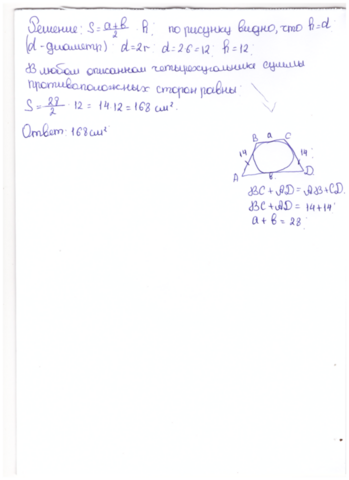 Решение: S = a+b/2 · h; по рисунку видно, что h=d.
(d - диаметр) d=2r d=2·6=12; h=12;
В любом описанном четырехугольнике суммы
противоположных сторон равны:
S = 28/2 · 12 = 14·12 = 168 см².
Ответ: 168 см²
B a C
14 14
A в D
BC + AD = AB + CD.
BC + AD = 14+14
a + b = 28